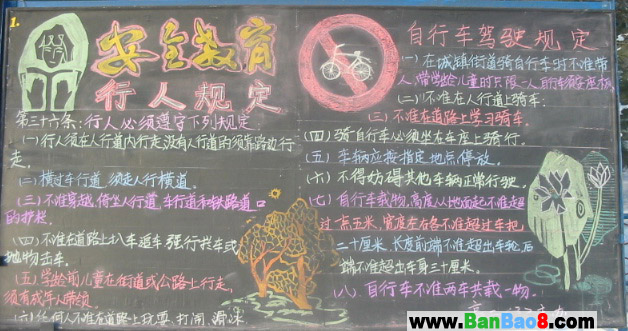 1.
安全教育
行人规定
第三十六条:行人必须遵守下列规定
(一)行人须在人行道内行走没有人行道的须靠路边行
走。
(二)横过车行道,须走人行横道。
(三)不准穿越、倚坐人行道、车行道和铁路道口
的护栏。
(四)不准在道路上扒车追车 强行拦车或
抛物击车。
(五)学龄前儿童在街道或公路上行走,
须有成年人带领
(六)任何人不准在道路上玩耍、打闹、滑冰
自行车驾驶规定
(一)在城镇街道骑自行车时不准带
人,带学龄儿童时只限一人
(二)不准在人行道上骑车
(三)不准在道路上学习骑车
(四)骑自行车必须坐在车座上骑行。
(五)车辆应按指定地点停放。
(六)不得妨碍其他车辆正常行驶。
(七)自行车载物,高度从地面起不准超
过一点五米,宽度左右各不准超过车把
二十厘米,长度前端不准超出车轮后
端不准超出车身三十厘米。
(八)自行车不准两车共载一物
www.BanBao8.com